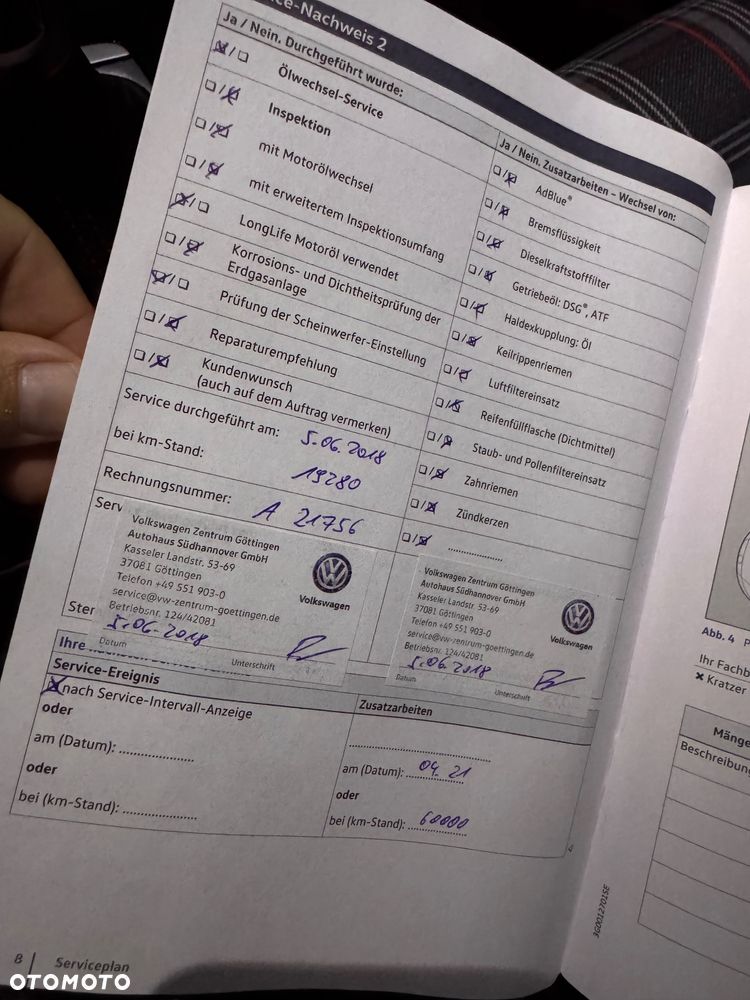 ce-Nachweis 2
Ja / Nein. Durchgeführt wurde:
Ölwechsel-Service
Inspektion
mit Motorölwechsel
mit erweitertem Inspektionsumfang
LongLife Motoröl verwendet
Korrosions- und Dichtheitsprüfung der
Erdgasanlage
Prüfung der Scheinwerfer-Einstellung
Reparaturempfehlung
Kundenwunsch
(auch auf dem Auftrag vermerken)
Service durchgeführt am: 5.06.2018
bei km-Stand: 19280
Rechnungsnummer: A 21756
Ja / Nein. Zusatzarbeiten – Wechsel von:
AdBlue®
Bremsflüssigkeit
Dieselkraftstofffilter
Getriebeöl: DSG®, ATF
Haldexkupplung: Öl
Keilrippenriemen
Luftfiltereinsatz
Reifenfüllflasche (Dichtmittel)
Staub- und Pollenfiltereinsatz
Zahnriemen
Zündkerzen
....................
Serv
Volkswagen Zentrum Göttingen
Autohaus Südhannover GmbH
Kasseler Landstr. 53-69
37081 Göttingen
Telefon +49 551 903-0
service@vw-zentrum-goettingen.de
Betriebsnr. 124/42081
Volkswagen
5.06.2018
Datum Unterschrift
Volkswagen Zentrum Göttingen
Autohaus Südhannover GmbH
Kasseler Landstr. 53-69
37081 Göttingen
Telefon +49 551 903-0
service@vw-zentrum-goettingen.de
Betriebsnr. 124/42081
Volkswagen
5.06.2018
Datum Unterschrift
Stem
Ihre
Service-Ereignis
nach Service-Intervall-Anzeige
oder
am (Datum): ....................
oder
bei (km-Stand): ....................
Zusatzarbeiten
am (Datum): 04.21
oder
bei (km-Stand): 60000
4
8 | Serviceplan
OTOMOTO
3G0012701SE
Abb. 4 P
Ihr Fachb
✖ Kratzer
Mänge
Beschreibung